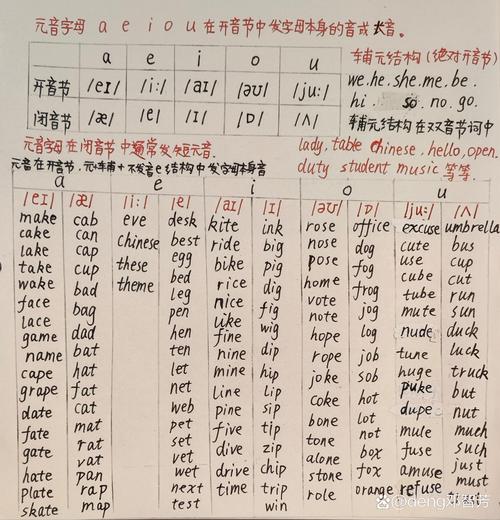 元音字母 a e i o u 在开音节中发字母本身的音或长音.
a e i o u
开音节 /eɪ/ /iː/ /aɪ/ /əʊ/ /juː/
闭音节 /æ/ /e/ /ɪ/ /ɒ/ /ʌ/
辅元结构(绝对开音节)
we.he.she.me.be.
hi. so. no. go.
辅元结构在双音节词中
lady, table chinese, hello, open.
duty student music 等等.
元音字母在闭音节中通常发短元音.
元音在开音节,元+辅+不发音e结构中发字母本身音
a e i o u
/eɪ/ /æ/ /iː/ /e/ /aɪ/ /ɪ/ /əʊ/ /ɒ/ /juː/ /ʌ/
make cab eve desk kite ink rose office excuse umbrella
cake can chinese best ride big nose dog cute bus
lake cap these egg bike pig pose fog use cup
take cup theme bed rice dig home frog cube cut
wake bad leg nice fig vote jog tube run
face bag pen like wig note log mute sun
lace dad hen fine dip hope job nude duck
game bat ten nine hip rope sob tune luck
name hat let mine lip joke hot huge truck
cape fat net line sip coke lot puke but
grape cat web pine tip bone not dupe nut
date mat pet five zip tone box mule much
fate rat set dive chip alone fox fuse such
gate vat vet drive trip stone orange amuse just
hate pan wet time win role refuse must
plate rap next
skate map test